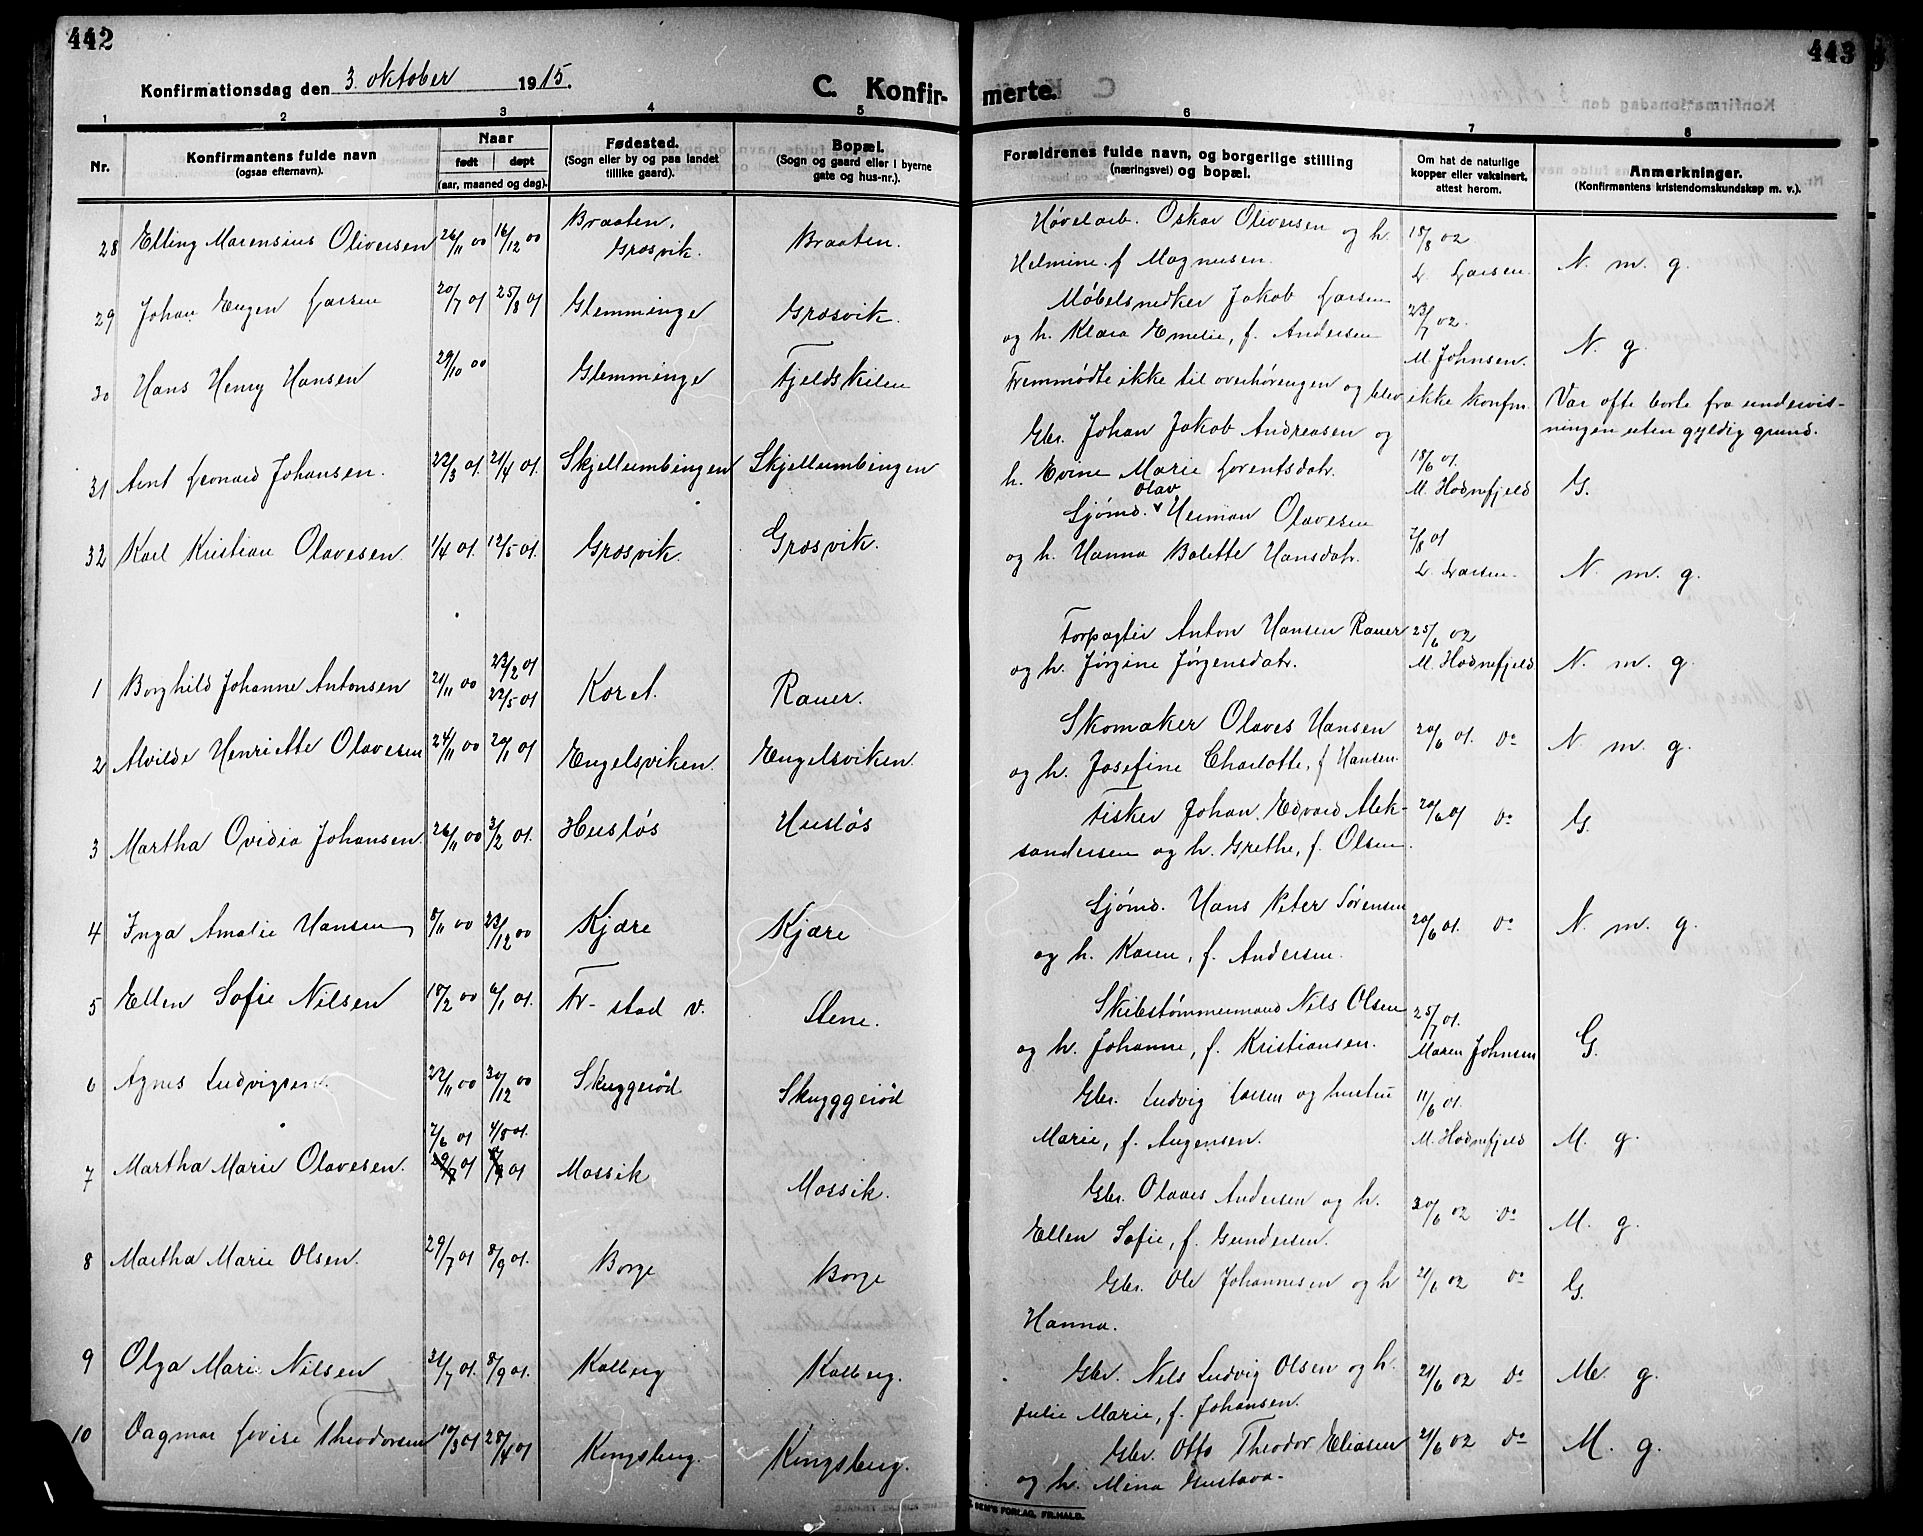 442
443
Konfirmationsdag den 3. oktober 1915.
C. Konfir-
merte.
1 2 3 4 5 6 7 8
Nr.
Konfirmantens fulde navn
(ogsaa efternavn).
Naar
født døpt
(aar, maaned og dag).
Fødested.
(Sogn eller by og paa landet
tillike gaard).
Bopæl.
(Sogn og gaard eller i byerne
gate og hus-nr.).
Forældrenes fulde navn, og borgerlige stilling
(næringsvei) og bopæl.
Om hat de naturlige
kopper eller vaksinert,
attest herom.
Anmerkninger.
(Konfirmantens kristendomskundskap m. v.).
28 Elling Marensius Oliversen 26/11 00 16/12 00 Braaten, Græsvik. Braaten.
Høvelarb. Oskar Oliversen og h.
Helmine f Magnusen
18/8 02 L. Larsen. N. m. g.
29 Johan Eugen Larsen 20/7 01 25/8 01 Glemminge Græsvik.
Møbelsnedker Jakob Larsen
og h. Klara Emelie, f. Andersen
23/7 02. M. Johnsen. N. g.
30 Hans Henry Hansen 29/10 00 Glemminge Fjeldskilen
Fremmødte ikke til overhøringen og blev ikke konfm. Var ofte borte fra undervis-
ningen uten gyldig grund.
31 Arnt Leonard Johansen. 22/3 01. 21/4 01. Skjellumbingen Skjellumbingen
Gbr. Johan Jakob Andreasen og
h. Evine Marie Lorentsdatr.
18/6 01. M. Hodnefjeld G.
32 Karl Kristian Olavesen. 1/4 01. 12/5 01. Græsvik. Græsvik.
Sjømd. Olav Herman Olavesen
og h. Hanna Bolette Hansdatr.
7/8 01 L. Larsen. N. m. g.
1 Borghild Johanne Antonsen 21/11 00 23/2 01 22/5 01 Koret. Rauer.
Forpagter Anton Hansen Rauer
og h. Jørgine Jørgensdatr.
25/6 02 M. Hodnefjeld N. m. g.
2 Alvilde Henriette Olavesen 24/11 00 20/1 01 Engelsviken. Engelsviken.
Skomaker Olaves Hansen
og h. Josefine Charlotte, f Hansen.
20/6 01. Do N. m. g.
3 Martha Ovidia Johansen. 26/11 00 3/2 01. Husløs Husløs
Fisker Johan Edvard Alek-
sandersen og h. Grethe, f. Olsen.
20/6 01 Do G.
4 Inga Amalie Hansen 8/11 00 23/12 00 Kjære Kjære
Sjømd. Hans Peter Sørensen
og h. Karen, f. Andersen.
20/6 01. Do N. m. g.
5 Ellen Sofie Nilsen 18/2 00 6/1 01. Fr-stad v. Stene.
Skibstømmermand Nils Olsen
og h. Johanne, f. Kristiansen.
25/7 01. Maren Johnsen G.
6 Agnes Ludvigsen. 22/11 00 30/12 00 Skuggerød Skugggerød
Gbr. Ludvig Larsen og hustru
Marie, f. Augensen.
11/6 01. M. Hodnefjeld M. g.
7 Martha Marie Olavesen. 2/6 01 4/8 01. Mossik Mossik.
Gbr. Olaves Andersen og h.
Ellen Sofie, f. Gundersen.
30/6 02 Do M. g.
8 Martha Marie Olsen. 29/7 01 8/9 01. Borge Borge
Gbr. Ole Johannesen og h
Hanna.
21/6 02 Do G.
9 Olga Marie Nilsen 31/7 01. 8/9 01. Kalberg Kalberg.
Gbr. Nils Ludvig Olsen og h.
Julie Marie, f. Johansen.
21/6 02 Do M. g.
10 Dagmar Lovise Theodorsen 10/3 01 28/4 01 Kongsberg. Kongsberg.
Gbr. Otto Theodor Eliasen
og h. Mina Gustava.
21/6 02 Do M. g.
SEM'S FORLAG, FR.HALD.